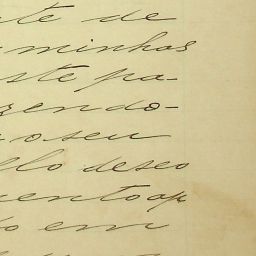 te de
minhas
ste pa-
zendo-
o seu
llo deseo
ento ap
o em